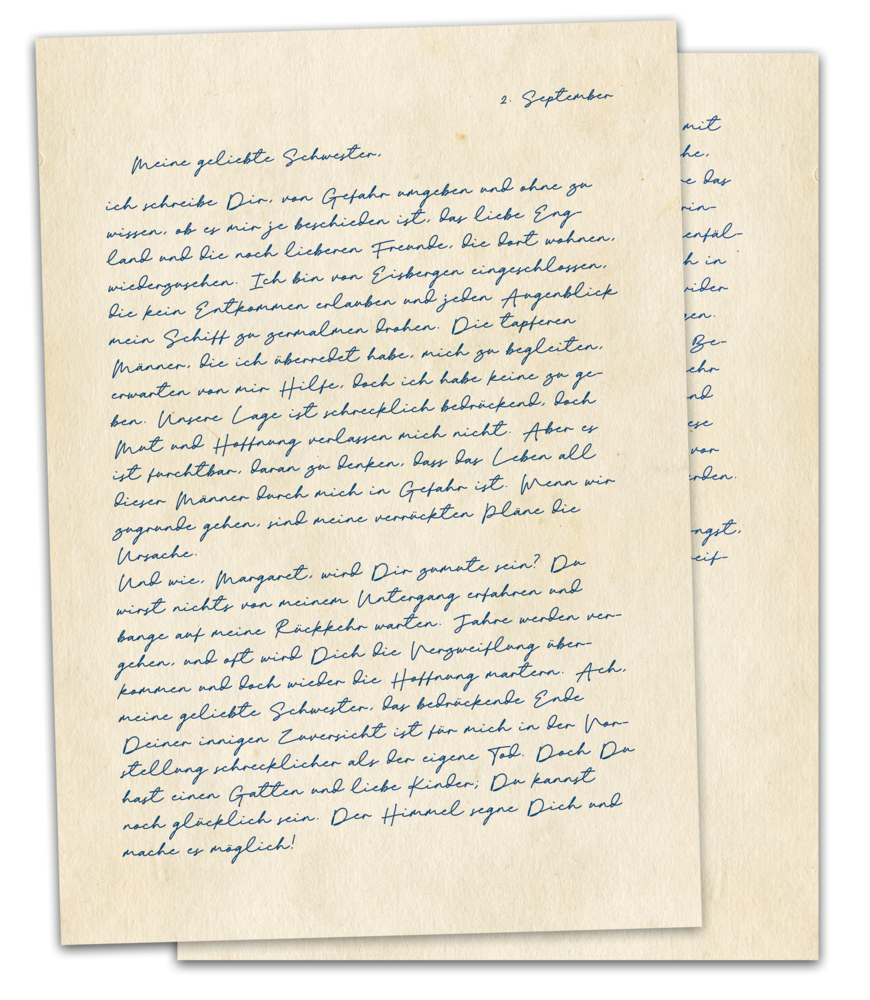 2. September
Meine geliebte Schwester,
ich schreibe Dir, von Gefahr umgeben und ohne zu
wissen, ob es mir je beschieden ist, das liebe Eng-
land und die noch lieberen Freunde, die dort wohnen,
wiederzusehen. Ich bin von Eisbergen eingeschlossen,
die kein Entkommen erlauben und jeden Augenblick
mein Schiff zu zermalmen drohen. Die tapferen
Männer, die ich überredet habe, mich zu begleiten,
erwarten von mir Hilfe, doch ich habe keine zu ge-
ben. Unsere Lage ist schrecklich bedrückend, doch
Mut und Hoffnung verlassen mich nicht. Aber es
ist furchtbar, daran zu denken, dass das Leben all
dieser Männer durch mich in Gefahr ist. Wenn wir
zugrunde gehen, sind meine verrückten Pläne die
Ursache.
Und wie, Margaret, wird Dir zumute sein? Du
wirst nichts von meinem Untergang erfahren und
bange auf meine Rückkehr warten. Jahre werden ver-
gehen, und oft wird Dich die Verzweiflung über-
kommen und doch wieder die Hoffnung martern. Ach,
meine geliebte Schwester, das bedrückende Ende
Deiner innigen Zuversicht ist für mich in der Vor-
stellung schrecklicher als der eigene Tod. Doch Du
hast einen Gatten und liebe Kinder; Du kannst
noch glücklich sein. Der Himmel segne Dich und
mache es möglich!
mit
he,
e das
rin-
enfäl-
h in
ider
gen.
Be-
ehr
nd
ese
vor
rden.
ngst,
eif-